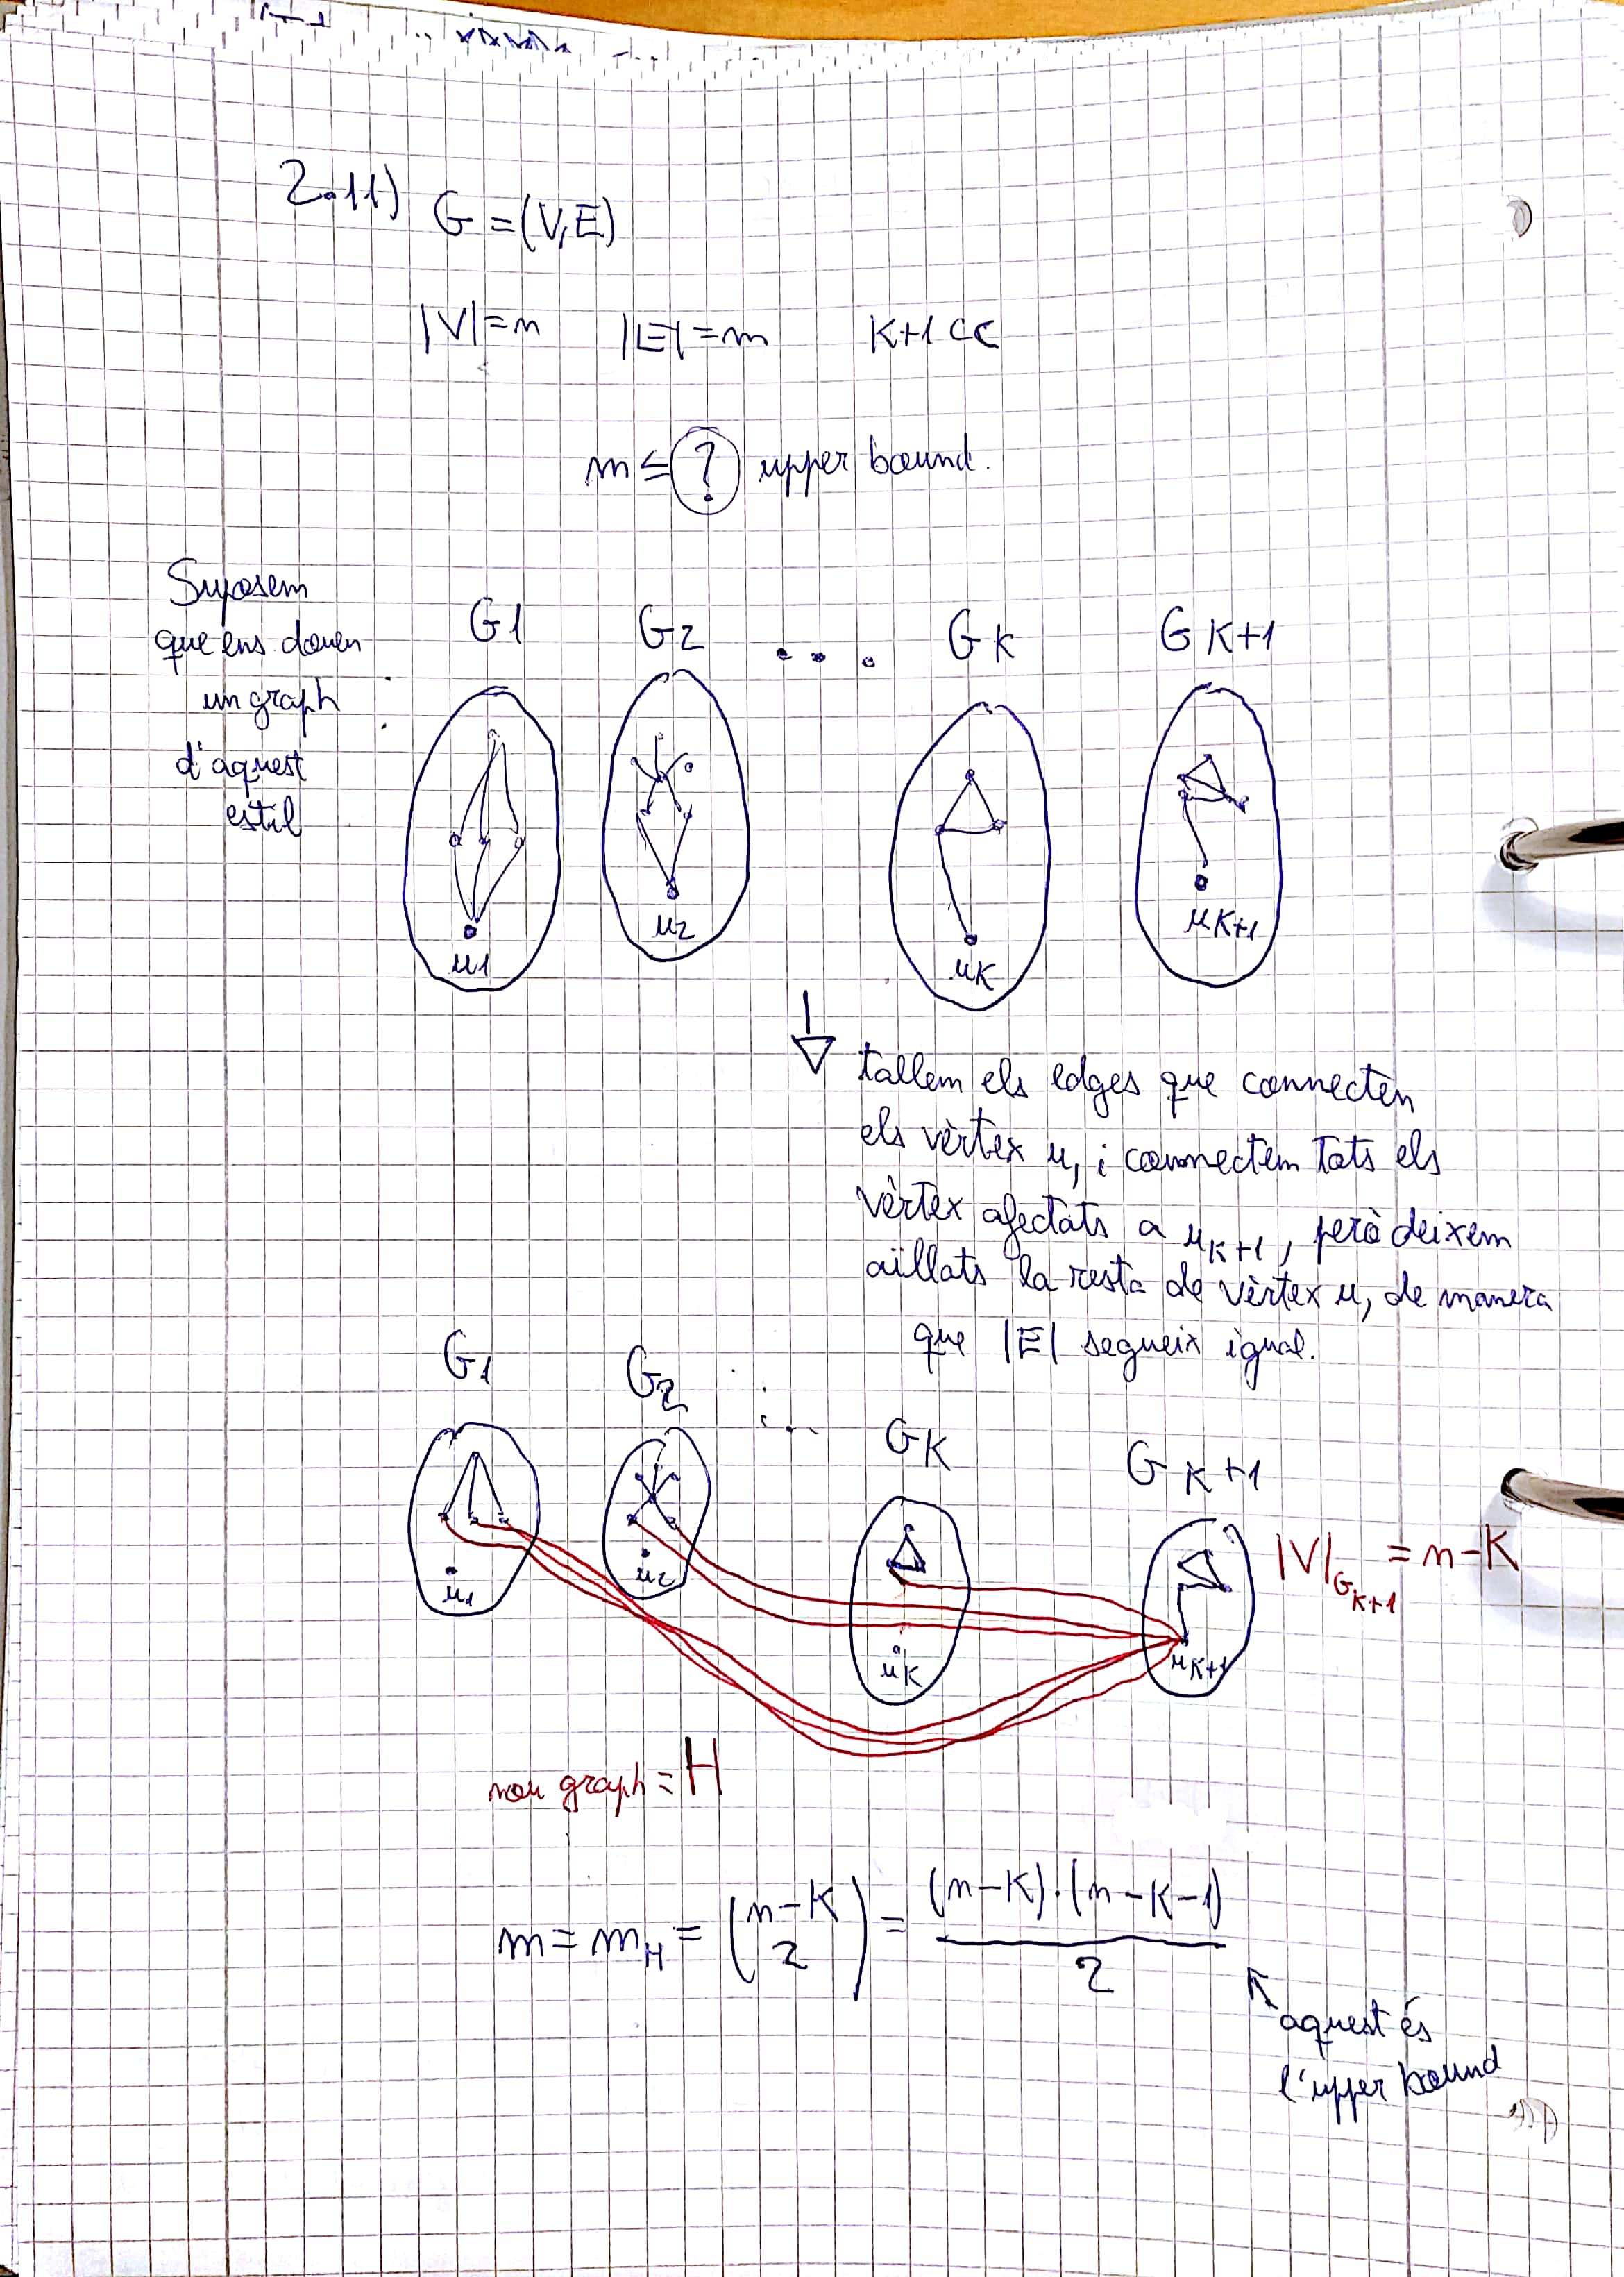 2.11) G = (V,E)
|V|=n |E|=m K+1 CC
m ≤ ? upper bound.
Suposem
que ens donen
un graph
d'aquest
estil
G1 G2 ... GK GK+1
u1 u2 uK uK+1
tallem els edges que connecten
els vèrtex u, i connectem tots els
vèrtex afectats a uK+1, però deixem
aïllats la resta de vèrtex u, de manera
que |E| segueix igual.
G1 G2 ... GK GK+1
u1 u2 uK uK+1
|V|GK+1 = n-K
nou graph = H
m = mH = (n-K 2) = (n-K)·(n-K-1) / 2
aquest és
l'upper bound